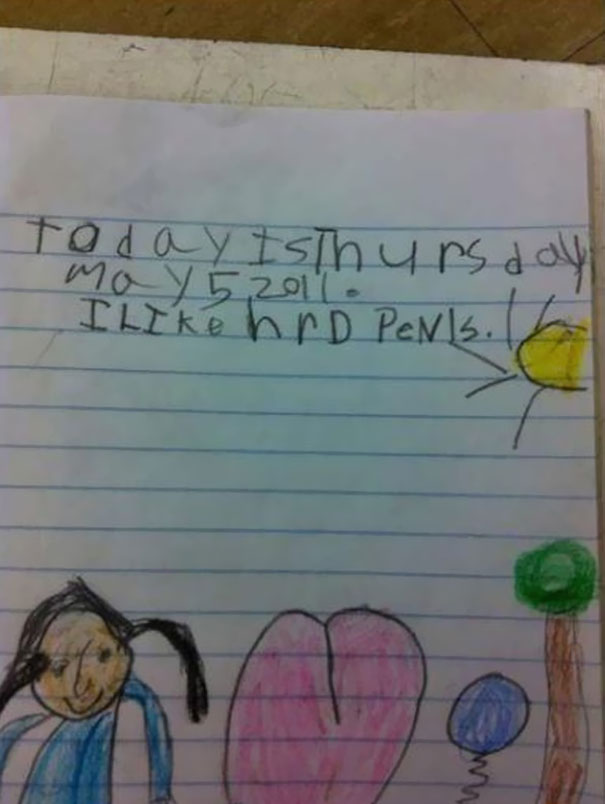 today IsThursday
may 5 2011.
I LIke hrD PeNIs.